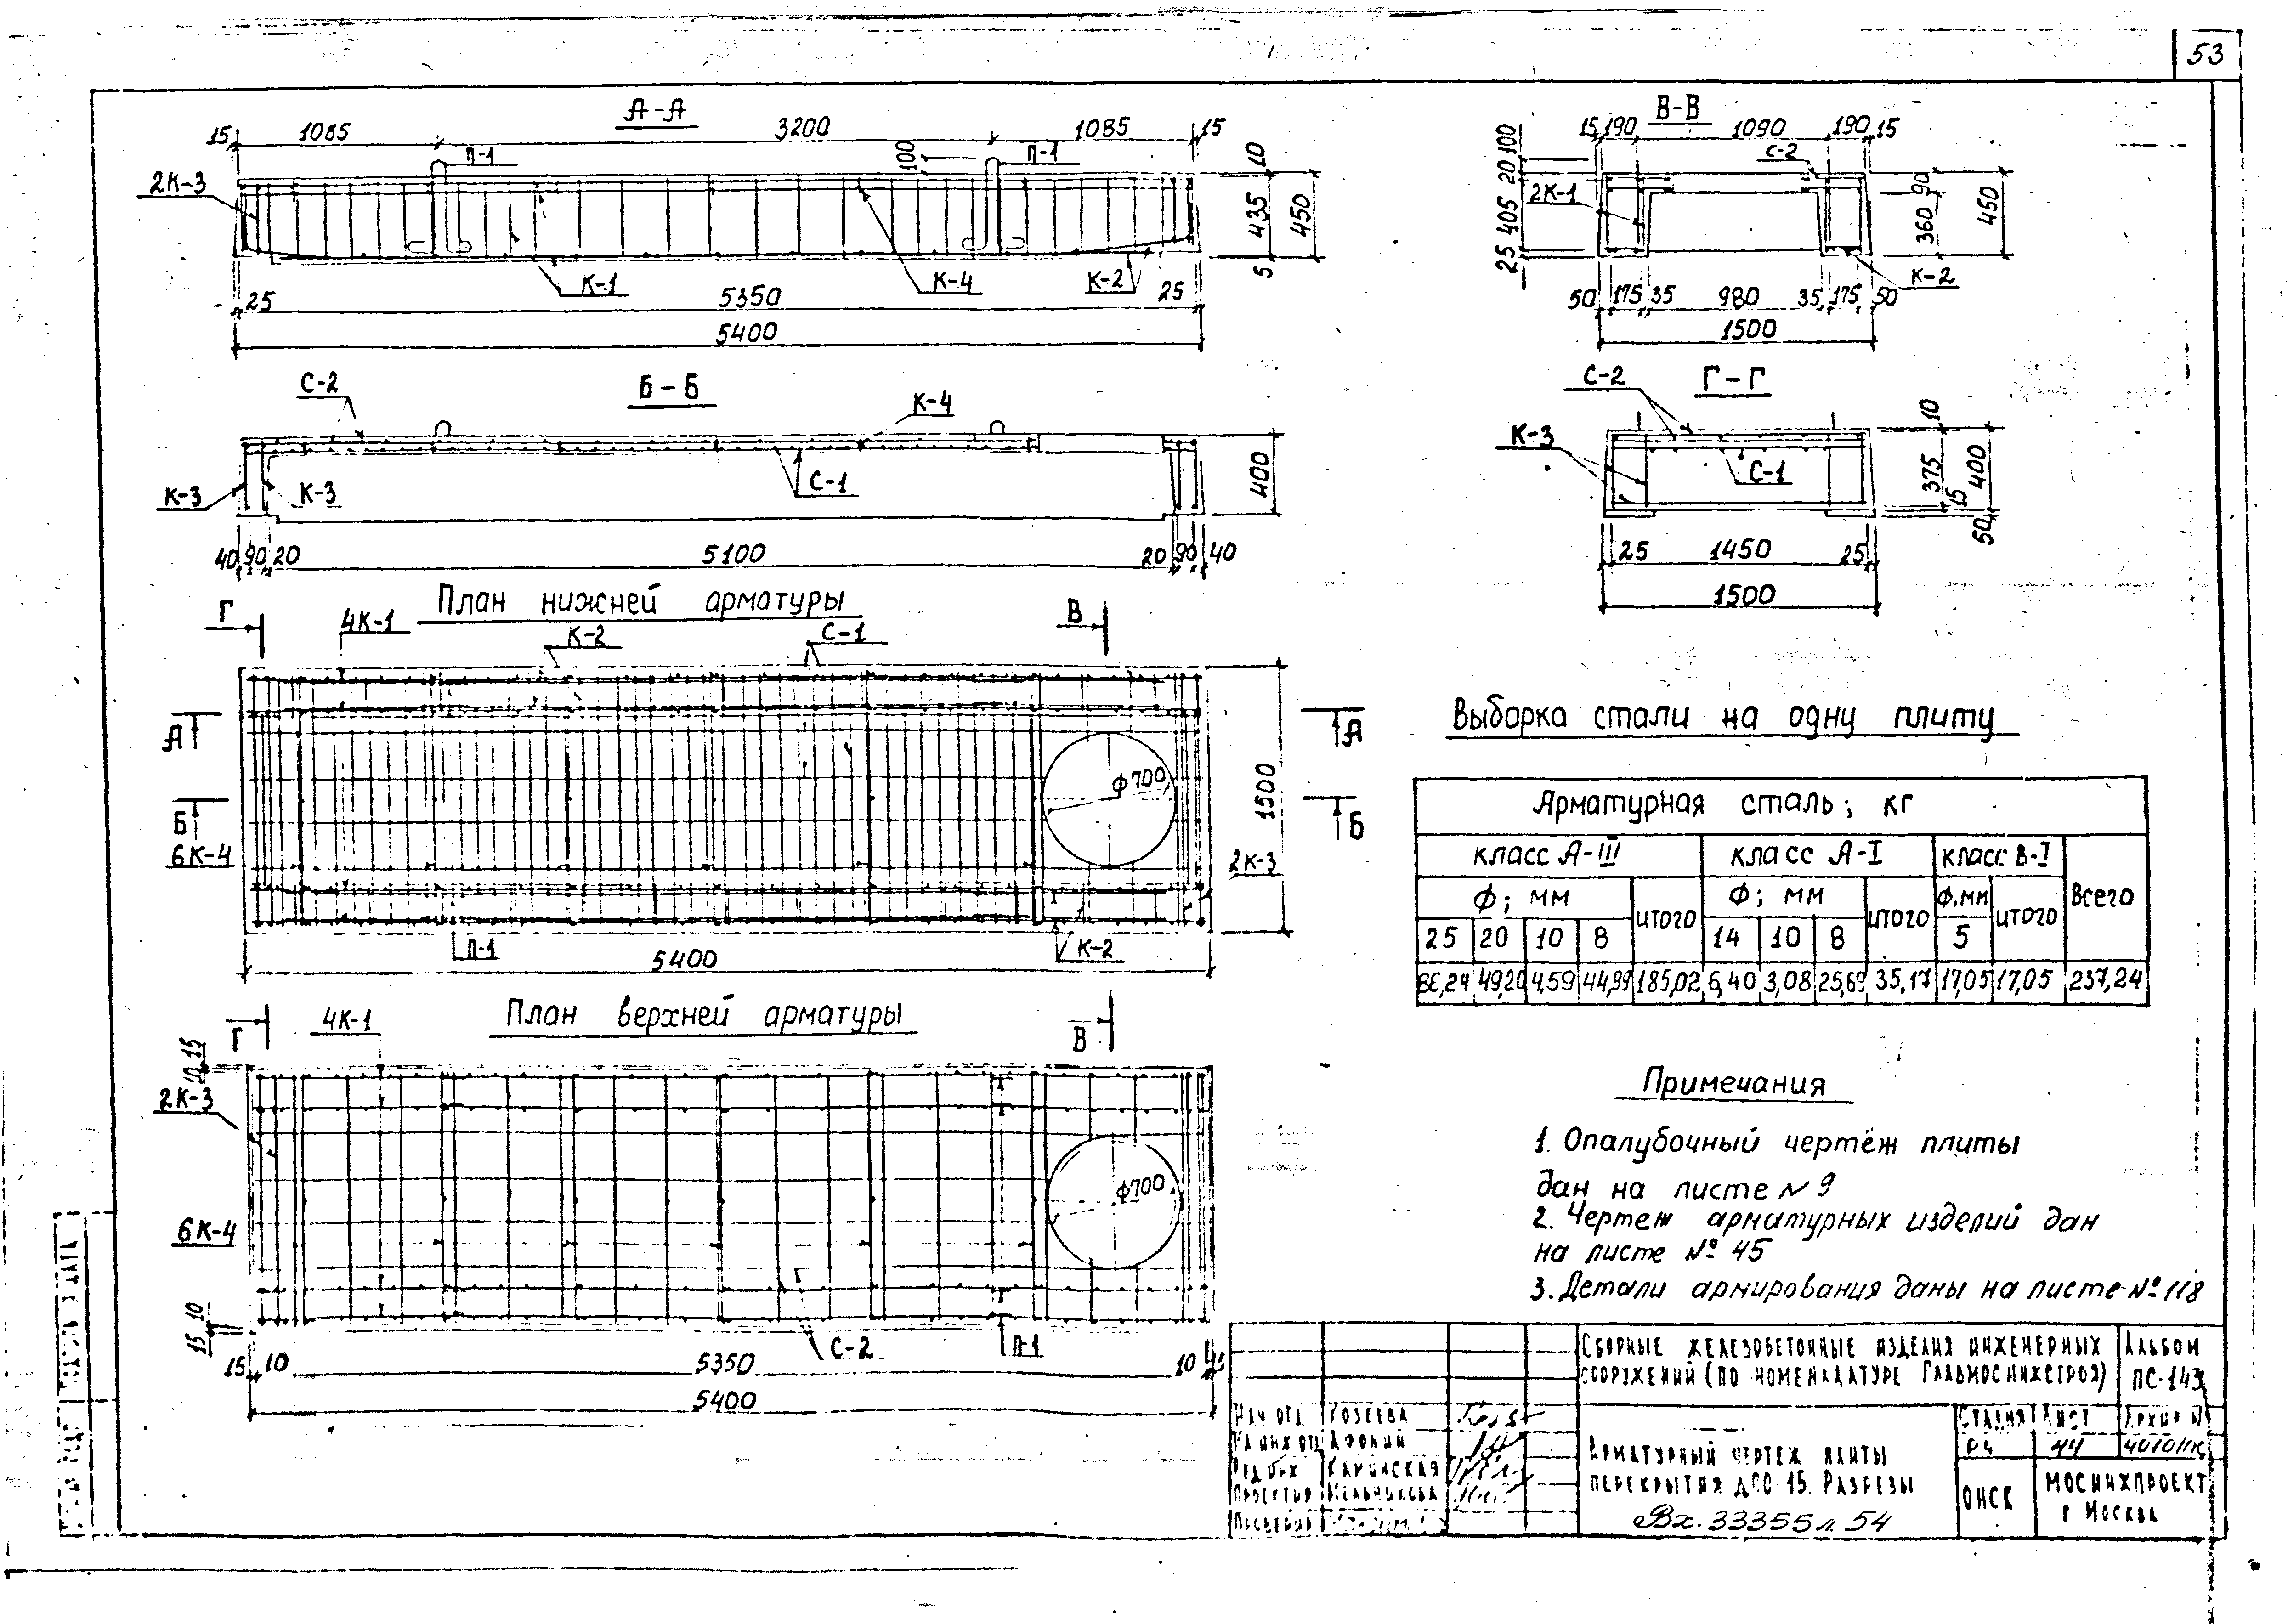 53
А-А
15 1085 3200 1085 15
П-1 100 П-1 10
2К-3
435 450
К-1 К-4 К-2 5
25 5350 25
5400
В-В
15 190 1090 190 15
20 100 С-2
2К-1 90
405 360 450
25 К-2
50 175 35 980 35 175 50
1500
С-2 Б-Б К-4
К-3 К-3 С-1 400
40 90 20 5100 20 90 40
С-2 Г-Г
К-3 С-1
10 375 400
15
50
25 1450 25
1500
План нижней арматуры
Г 4К-1 К-2 С-1 В
А А
ф700 1500
Б Б
6К-4 2К-3
П-1 К-2
5400
План верхней арматуры
Г 4К-1 В
10 15
2К-3
ф700
6К-4
15 10
С-2 П-1
15 10 5350 10 15
5400
Выборка стали на одну плиту
Арматурная сталь; кг
класс А-III класс А-I класс В-I Всего
Ф; мм итого Ф; мм итого Ф, мм итого
25 20 10 8 14 10 8 5
49,20 4,59 44,99 185,02 6,40 3,08 25,69 35,17 17,05 17,05 237,24
Примечания
1. Опалубочный чертёж плиты
дан на листе № 9
2. Чертеж арматурных изделий дан
на листе № 45
3. Детали армирования даны на листе № 118
Сборные железобетонные изделия инженерных
сооружений (по номенклатуре Главмосинжстроя)
Альбом
ПС-143
Нач отд Козеева
Афонин
Каминская
Мельникова
Арматурный чертеж плиты
перекрытия 15. Разрезы
Вх. 33355 л. 54
Стадия Лист Архив №
44
ОНСК
Мосинжпроект
г Москва